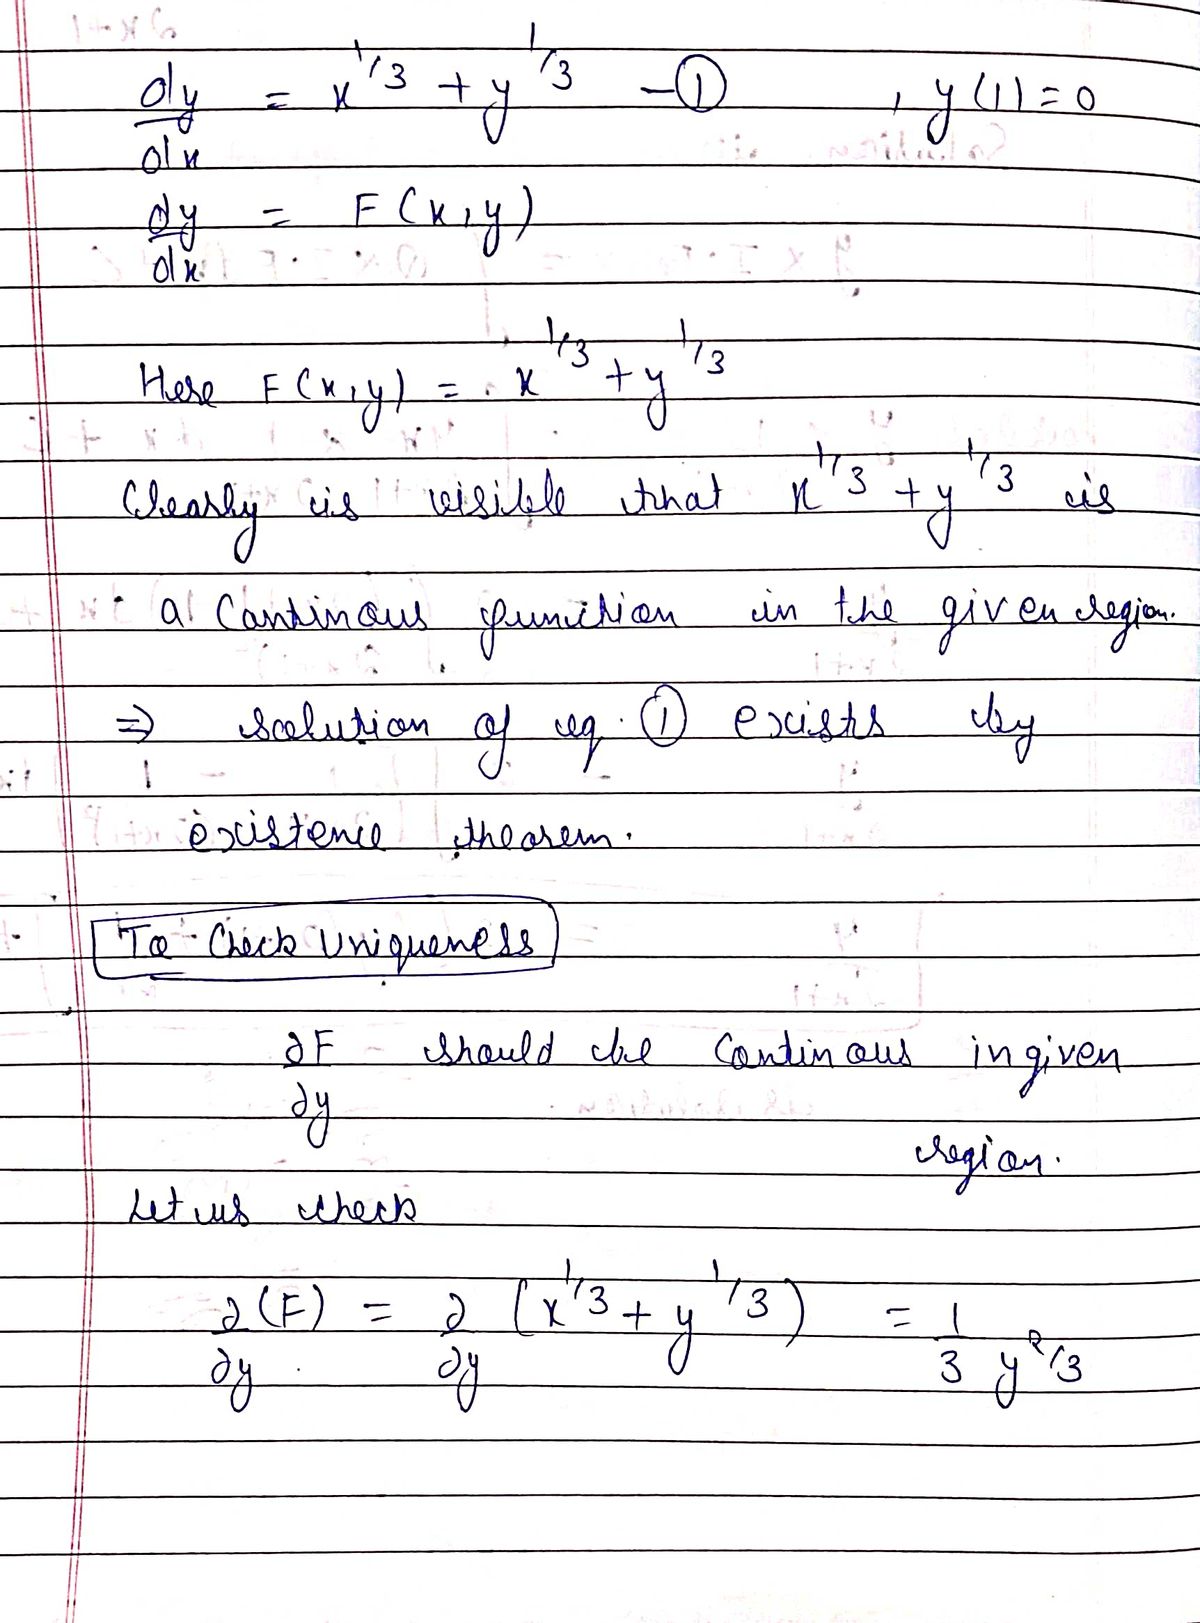 dy/dx = x^1/3 + y^1/3 - ① , y(1) = 0
dy/dx = F(x,y)
Here F(x,y) = x^1/3 + y^1/3
Clearly is visible that x^1/3 + y^1/3 is
a Continous function in the given region.
⇒ solution of eq. ① exists by
existence theorem.
To Check Uniqueness
∂F/∂y should be Continous in given
region.
Let us check
∂(F)/∂y = ∂/∂y (x^1/3 + y^1/3) = 1/3 y^2/3